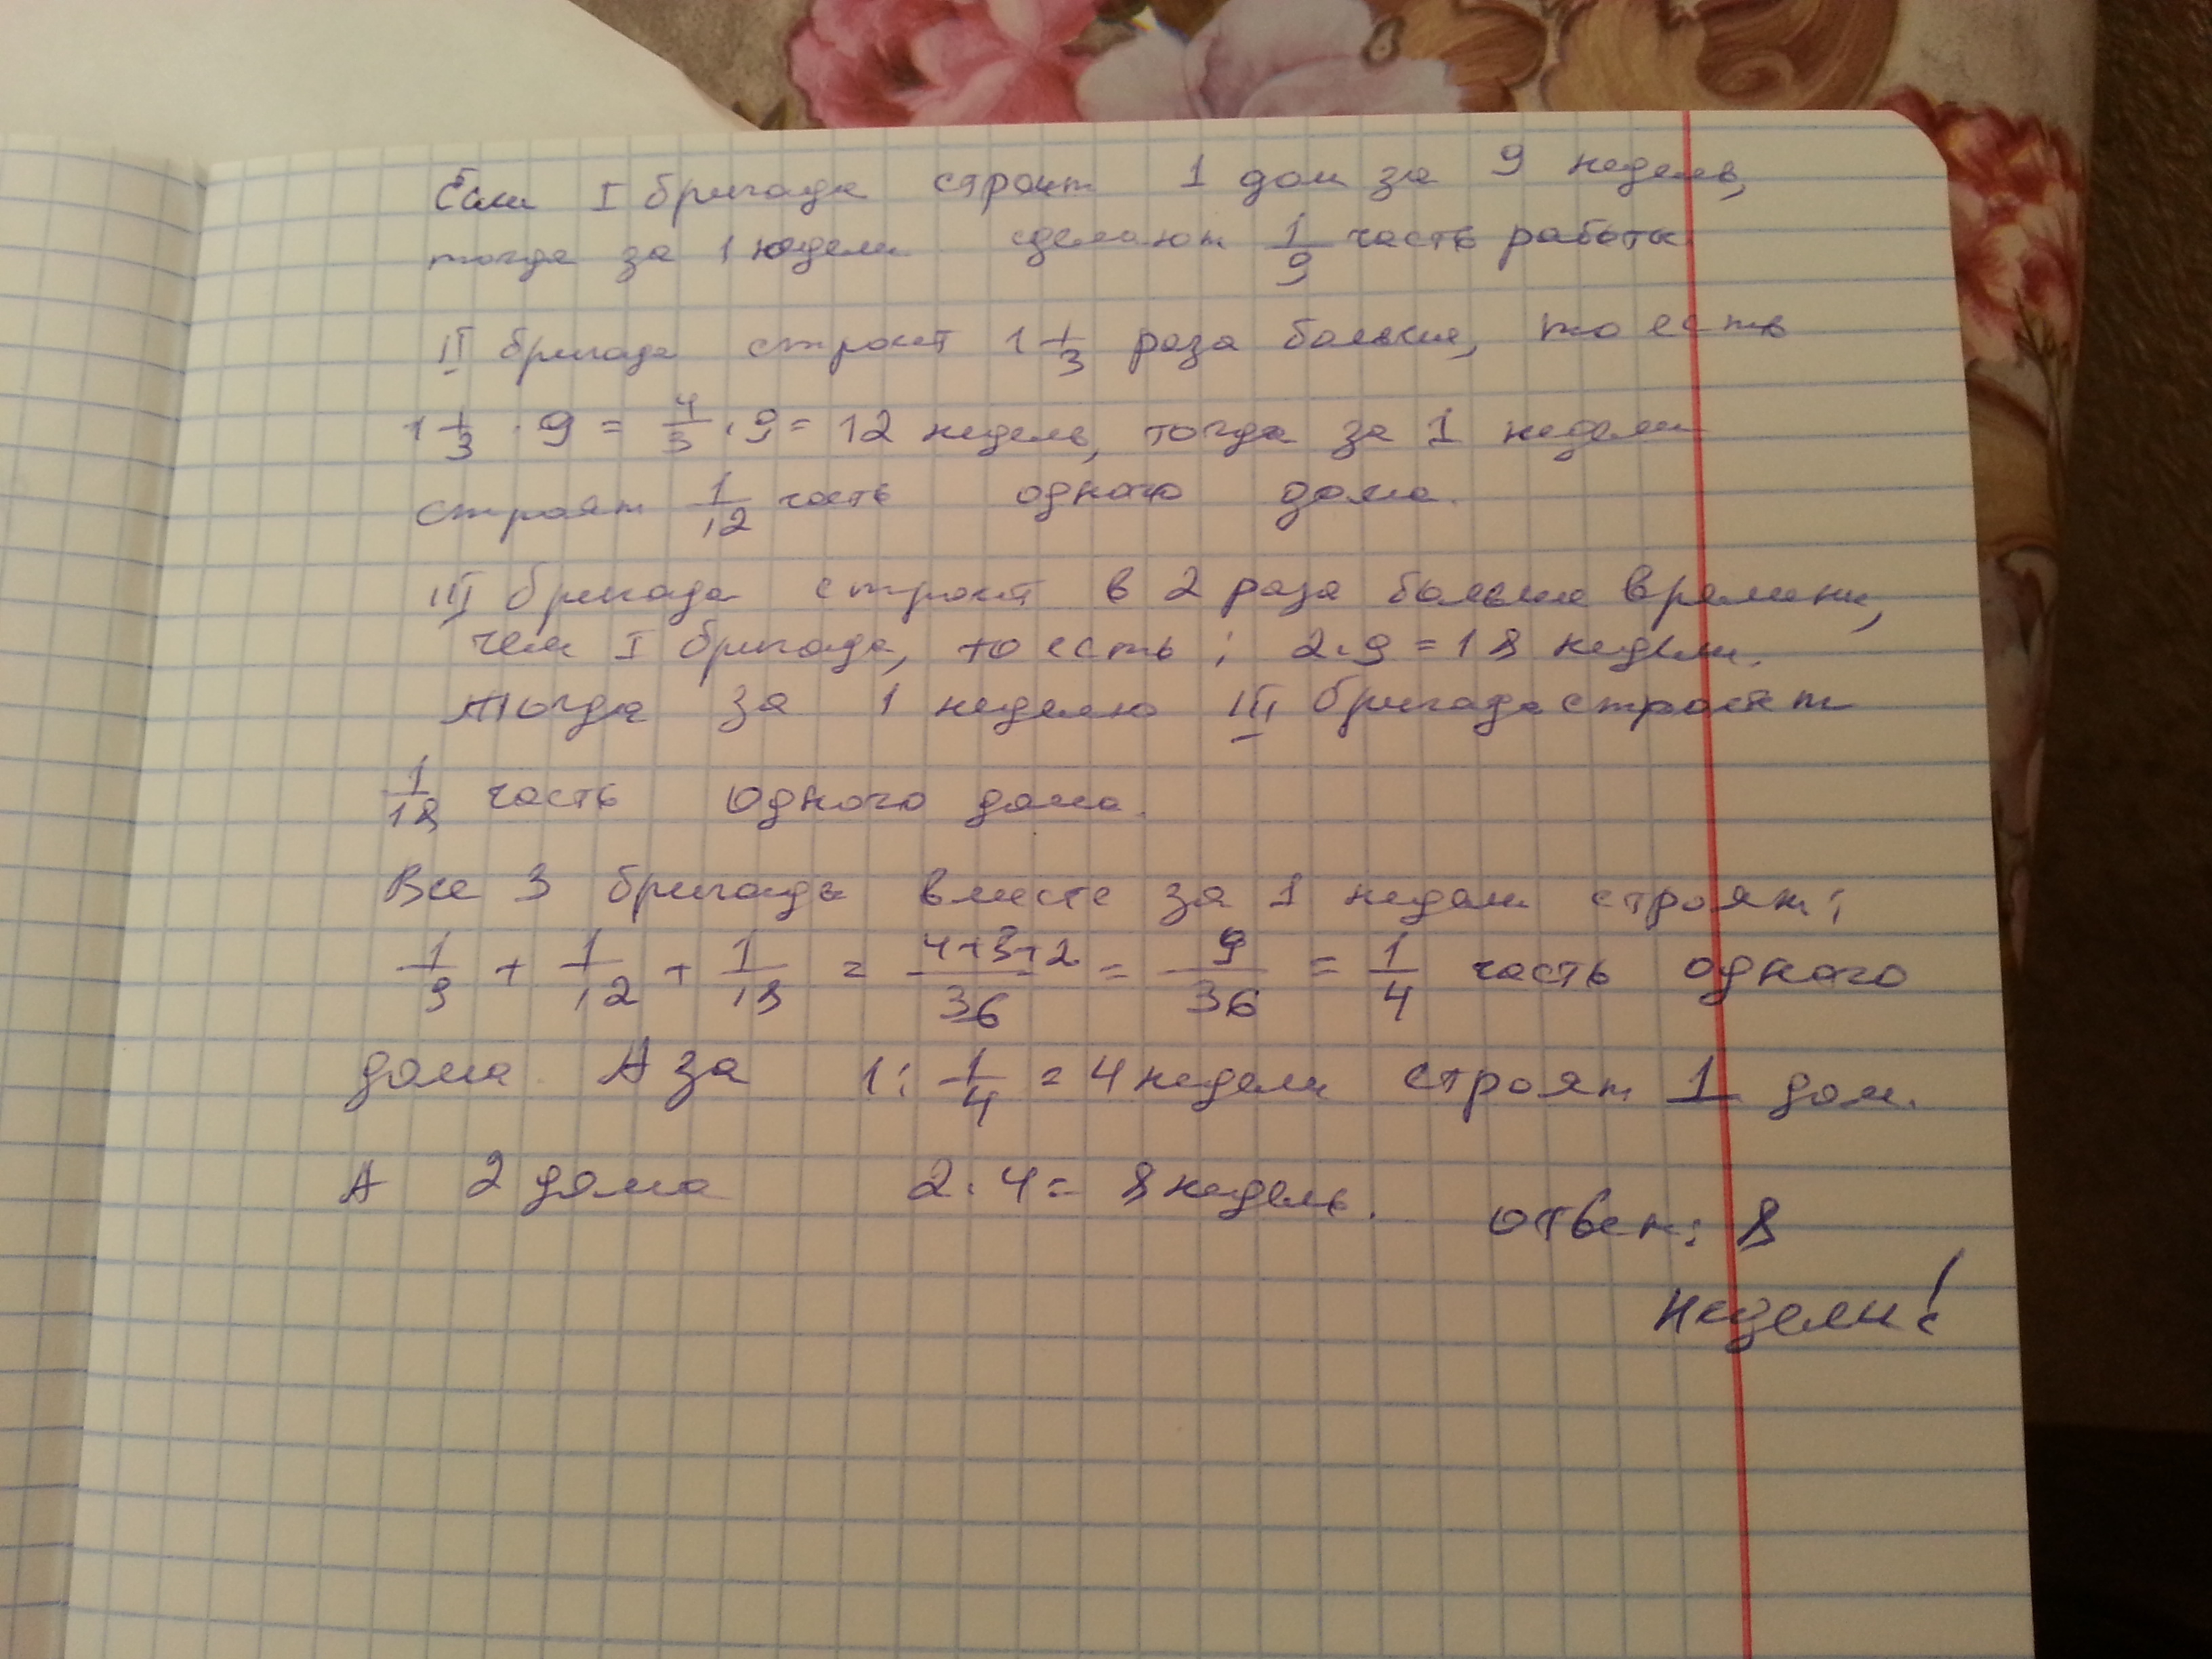 Если I бригада строит 1 дом за 9 недель,
тогда за 1 недели сделают 1/9 часть работы
II бригада строит 1 1/3 раза больше, то есть
1 1/3 · 9 = 4/3 · 9 = 12 недель, тогда за 1 недели
строят 1/12 часть одного дома.
III бригада строит в 2 раза больше времени,
чем I бригада, то есть : 2·9 = 18 недели.
Тогда за 1 неделю III бригада строят
1/18 часть одного дома.
Все 3 бригады вместе за 1 недели строят:
1/9 + 1/12 + 1/18 = 4+3+2/36 = 9/36 = 1/4 часть одного
дома. А за 1 : 1/4 = 4 недели строят 1 дом.
А 2 дома 2·4 = 8 недель. ответ: 8
недели!